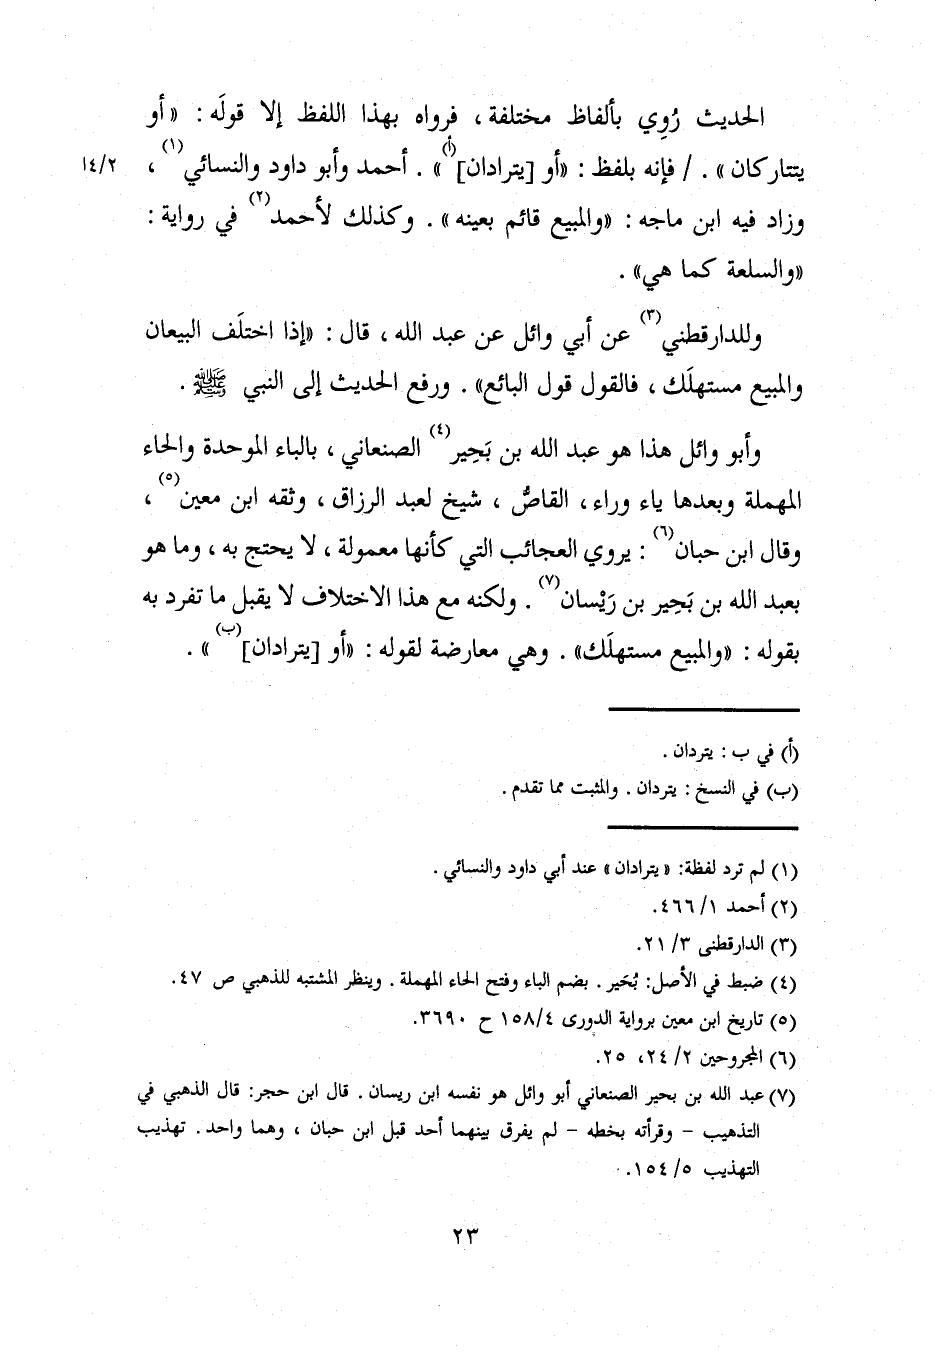 الحديث رُوِي بألفاظ مختلفة ، فرواه بهذا اللفظ إلا قولَه : «أو
يتتاركان» . / فإنه بلفظ : «أو [يترادان](أ)» . أحمد وأبو داود والنسائي(١) ،
١٤/٢
وزاد فيه ابن ماجه : «والمبيع قائم بعينه» . وكذلك لأحمد(٢) في رواية :
«والسلعة كما هي» .
وللدارقطني(٣) عن أبي وائل عن عبد الله ، قال : «إذا اختلَف البيعان
والمبيع مستهلَك ، فالقول قول البائع» . ورفع الحديث إلى النبي ﷺ .
وأبو وائل هذا هو عبد الله بن بَحِير(٤) الصنعاني ، بالباء الموحدة والحاء
المهملة وبعدها ياء وراء ، القاصُّ ، شيخ لعبد الرزاق ، وثقه ابن معين(٥) ،
وقال ابن حبان(٦) : يروي العجائب التي كأنها معمولة ، لا يحتج به ، وما هو
بعبد الله بن بَحِير بن رَيْسان(٧) . ولكنه مع هذا الاختلاف لا يقبل ما تفرد به
بقوله : «والمبيع مستهلَك» . وهي معارضة لقوله : «أو [يترادان](ب)» .
(أ) في ب : يتردان .
(ب) في النسخ : يتردان . والمثبت مما تقدم .
(١) لم ترد لفظة: «يترادان» عند أبي داود والنسائي .
(٢) أحمد ١/ ٤٦٦.
(٣) الدارقطنى ٣/ ٢١.
(٤) ضبط في الأصل: بُحَير . بضم الباء وفتح الحاء المهملة . وينظر المشتبه للذهبي ص ٤٧.
(٥) تاريخ ابن معين برواية الدورى ١٥٨/٤ ح ٣٦٩٠.
(٦) المجروحين ٢/ ٢٤، ٢٥.
(٧) عبد الله بن بحير الصنعاني أبو وائل هو نفسه ابن ريسان . قال ابن حجر: قال الذهبي في
التذهيب - وقرأته بخطه - لم يفرق بينهما أحد قبل ابن حبان ، وهما واحد . تهذيب
التهذيب ٥/ ١٥٤.
٢٣